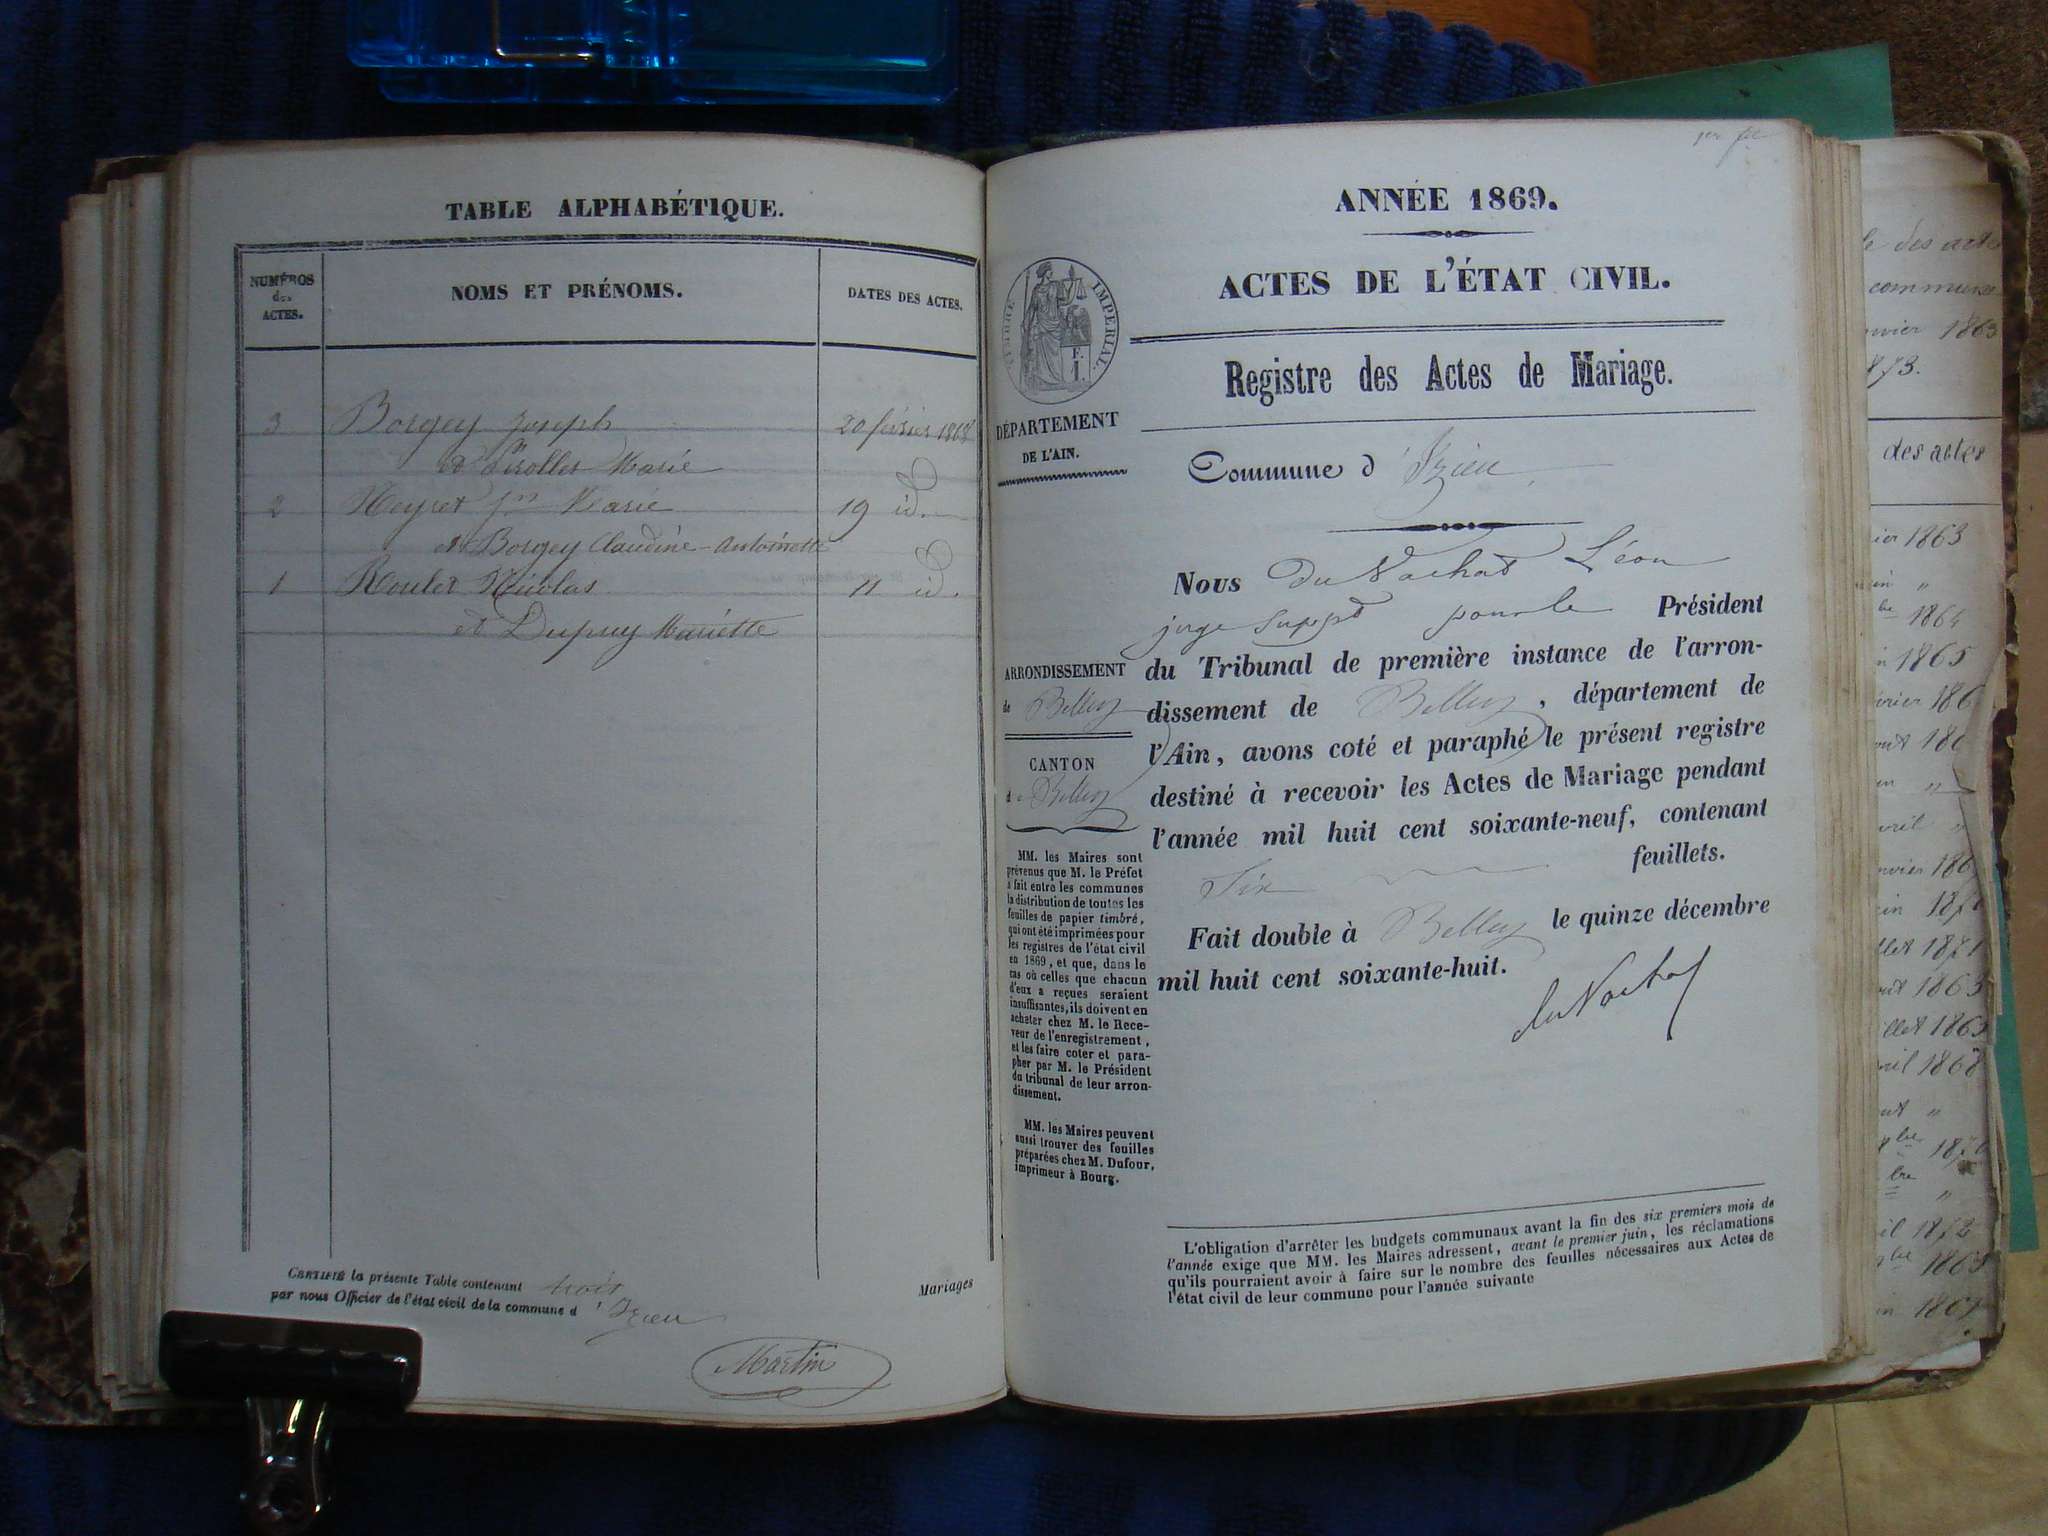 TABLE ALPHABÉTIQUE.
NUMÉROS
des
ACTES.
NOMS ET PRÉNOMS.
DATES DES ACTES.
3 Borgey Joseph 20 février 1868
et Pirollet Marie
2 Heyret Jn Marie 19 id.
et Borgey Claudine-Antoinette
1 Roulet Nicolas 11 id.
et Dupuy Mariette
CERTIFIÉ la présente Table contenant trois
par nous Officier de l'état civil de la commune d'Izieu
Mariages
Martin
1er
ANNÉE 1869.
ACTES DE L'ÉTAT CIVIL.
TIMBRE IMPERIAL.
Registre des Actes de Mariage.
DÉPARTEMENT
DE L'AIN.
Commune d'Izieu
ARRONDISSEMENT
de Belley
CANTON
de Belley
MM. les Maires sont
prévenus que M. le Préfet
a fait entre les communes
la distribution de toutes les
feuilles de papier timbré,
qui ont été imprimées pour
les registres de l'état civil
en 1869, et que, dans le
cas où celles que chacun
d'eux a reçues seraient
insuffisantes, ils doivent en
acheter chez M. le Rece-
veur de l'enregistrement,
et les faire coter et para-
pher par M. le Président
du tribunal de leur arron-
dissement.
MM. les Maires peuvent
aussi trouver des feuilles
préparées chez M. Dufour,
imprimeur à Bourg.
Nous Du Vachat Léon
juge suppt pour le Président
du Tribunal de première instance de l'arron-
dissement de Belley, département de
l'Ain, avons coté et paraphé le présent registre
destiné à recevoir les Actes de Mariage pendant
l'année mil huit cent soixante-neuf, contenant
Six feuillets.
Fait double à Belley le quinze décembre
mil huit cent soixante-huit.
du Vachat
L'obligation d'arrêter les budgets communaux avant la fin des six premiers mois de
l'année exige que MM. les Maires adressent, avant le premier juin, les réclamations
qu'ils pourraient avoir à faire sur le nombre des feuilles nécessaires aux Actes de
l'état civil de leur commune pour l'année suivante
des actes
commune
1863
des actes
1863
1864
1865
1871
1863
1863
1868
1872